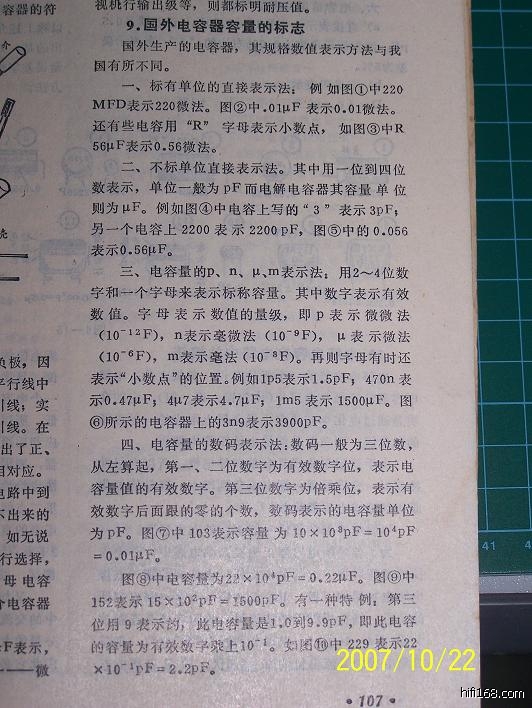 容器的符
个
壳
负极，因
平行线中
引线；实
引线。在
出了正、
相对应。
电路中到
不出来的
如无说
行选择，
母电容
个电容器
F表示，
——微
视机行输出级等，则都标明耐压值。
9.国外电容器容量的标志
国外生产的电容器，其规格数值表示方法与我
国有所不同。
一、标有单位的直接表示法；例如图①中220
MFD表示220微法。图②中.01μF 表示0.01微法。
还有些电容用“R”字母表示小数点，如图③中R
56μF表示0.56微法。
二、不标单位直接表示法。其中用一位到四位
数表示，单位一般为pF而电解电容器其容量单位
则为μF。例如图④中电容上写的“3”表示3pF；
另一个电容上2200表示2200pF，图⑤中的0.056
表示0.56μF。
三、电容量的p、n、μ、m表示法；用2～4位数
字和一个字母来表示标称容量。其中数字表示有效
数值。字母表示数值的量级，即p表示微微法
(10⁻¹²F)，n表示毫微法(10⁻⁹F)，μ表示微法
(10⁻⁶F)，m表示毫法(10⁻³F)。再则字母有时还
表示“小数点”的位置。例如1p5表示1.5pF；470n表
示0.47μF；4μ7表示4.7μF；1m5表示1500μF。图
⑥所示的电容器上的3n9表示3900pF。
四、电容量的数码表示法：数码一般为三位数，
从左算起，第一、二位数字为有效数字位，表示电
容量值的有效数字。第三位数字为倍乘位，表示有
效数字后面跟的零的个数，数码表示的电容量单位
为pF。图⑦中103表示容量为10×10³pF=10⁴pF
=0.01μF。
图⑧中电容量为22×10⁴pF=0.22μF。图⑨中
152表示15×10²pF=1500pF。有一种特例：第三
位用9表示的，此电容量是1.0到9.9pF，即此电容
的容量为有效数字乘上10⁻¹。如图⑩中229表示22
×10⁻¹pF=2.2pF。
·107·
41
42
2007/10/22
hifi168.com